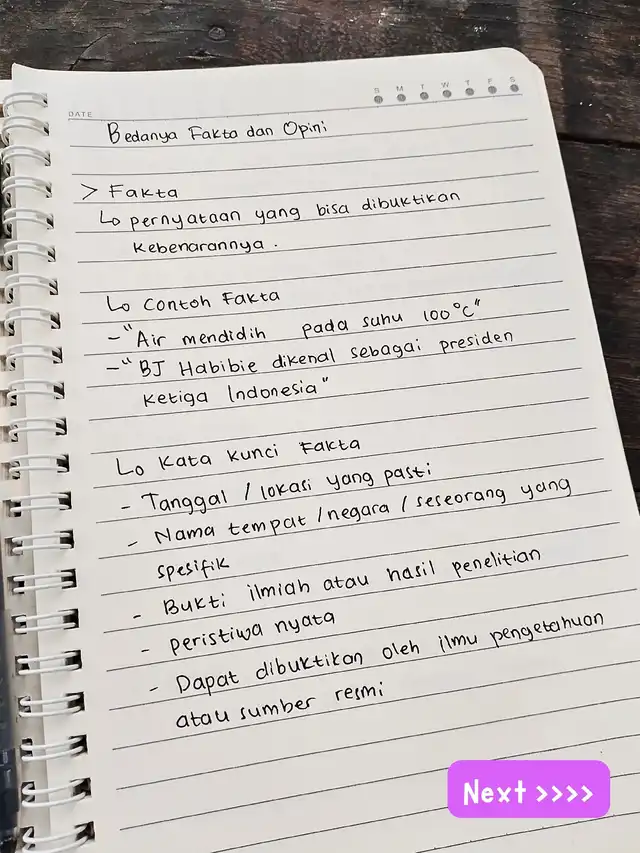 S M T W T F S
DATE
Bedanya Fakta dan Opini
> Fakta
↳ pernyataan yang bisa dibuktikan
kebenarannya.
↳ Contoh Fakta
- "Air mendidih pada suhu 100°C"
- "BJ Habibie dikenal sebagai presiden
ketiga Indonesia"
↳ Kata kunci Fakta
- Tanggal / lokasi yang pasti
- Nama tempat / negara / seseorang yang
spesifik
- Bukti ilmiah atau hasil penelitian
- peristiwa nyata
- Dapat dibuktikan oleh ilmu pengetahuan
atau sumber resmi
Next >>>>